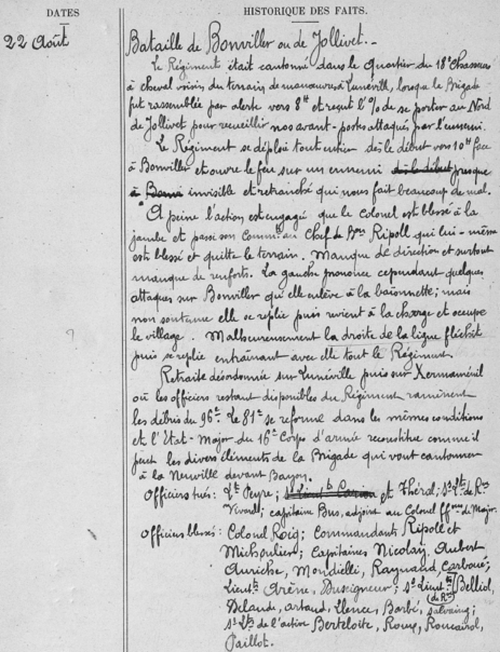 DATES
HISTORIQUE DES FAITS.
22 Août
Bataille de Bonviller ou de Jollivet. -
Le Régiment était cantonné dans le quartier du 18e Chasseurs
à cheval voisin du terrain de manœuvres à Lunéville, lorsque la Brigade
fut rassemblée par alerte vers 8H et reçut l'O/ de se porter au Nord
de Jollivet pour recueillir nos avant-postes attaqués par l'ennemi.
Le Régiment se déploie tout entier dès le début vers 10H face
à Bonviller et ouvre le feu sur un ennemi dès le début presque
invisible et retranché qui nous fait beaucoup de mal.
A peine l'action est engagée que le Colonel est blessé à la
jambe et passe son Commt au Chef de Bon Ripoll qui lui-même
est blessé et quitte le terrain. Manque de direction et surtout
manque de renforts. La gauche prononce cependant quelques
attaques sur Bonviller qu'elle enlève à la baïonnette; mais
non soutenue elle se replie puis revient à la charge et occupe
le village. Malheureusement la droite de la ligne fléchit
puis se replie entraînant avec elle tout le Régiment.
Retraite désordonnée sur Lunéville puis sur Xermaménil
où les officiers restant disponibles du Régiment ramènent
les débris du 96e. Le 81e se reforme dans les mêmes conditions
et l'Etat-Major du 16e Corps d'armée reconstitue comme il
peut les divers éléments de la Brigade qui vont cantonner
à la Neuville devant Bayon.
Officiers tués: Lt Peyre; et Théral; s/Lt de Rve
Vivarel; capitaine Bus, adjoint au Colonel ff ons de Major.
Officiers blessés: Colonel Roig; Commandants Ripoll et
Michoulier; Capitaines Nicolaÿ, Aubert
Auriche, Mondielli, Raynaud Carboué;
Lieutts Arène, Duseigneur; s/Lieutts de Rve Belliol,
Delaude, Artaud, Llence, Barbé, Salvaing;
s/Lts de l'active Berteloite, Roux, Romairol,
Paillot.